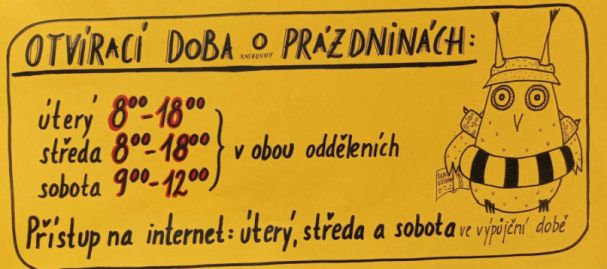 OTVÍRACÍ DOBA KNIHOVNY O PRÁZDNINÁCH:
úterý 8⁰⁰-18⁰⁰
středa 8⁰⁰-18⁰⁰
sobota 9⁰⁰-12⁰⁰
v obou odděleních
Přístup na internet: úterý, středa a sobota ve výpůjční době